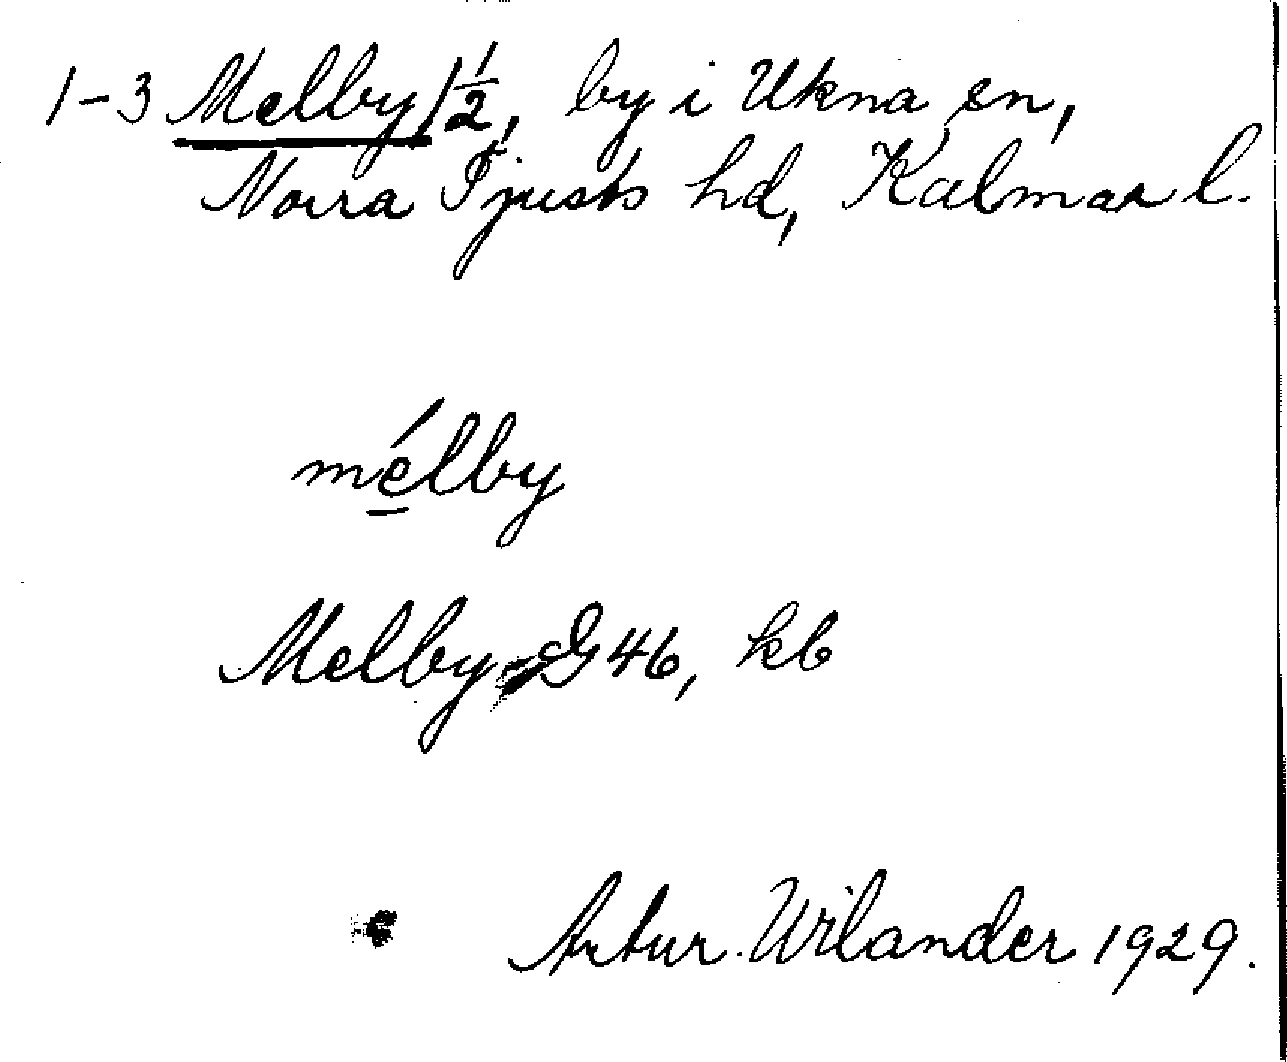 1-3 Melby 1 1/2, by i Ukna sn,
Norra Tjusts hd, Kalmar l.
mélby
Melby G 46, kb
Artur Wilander 1929.